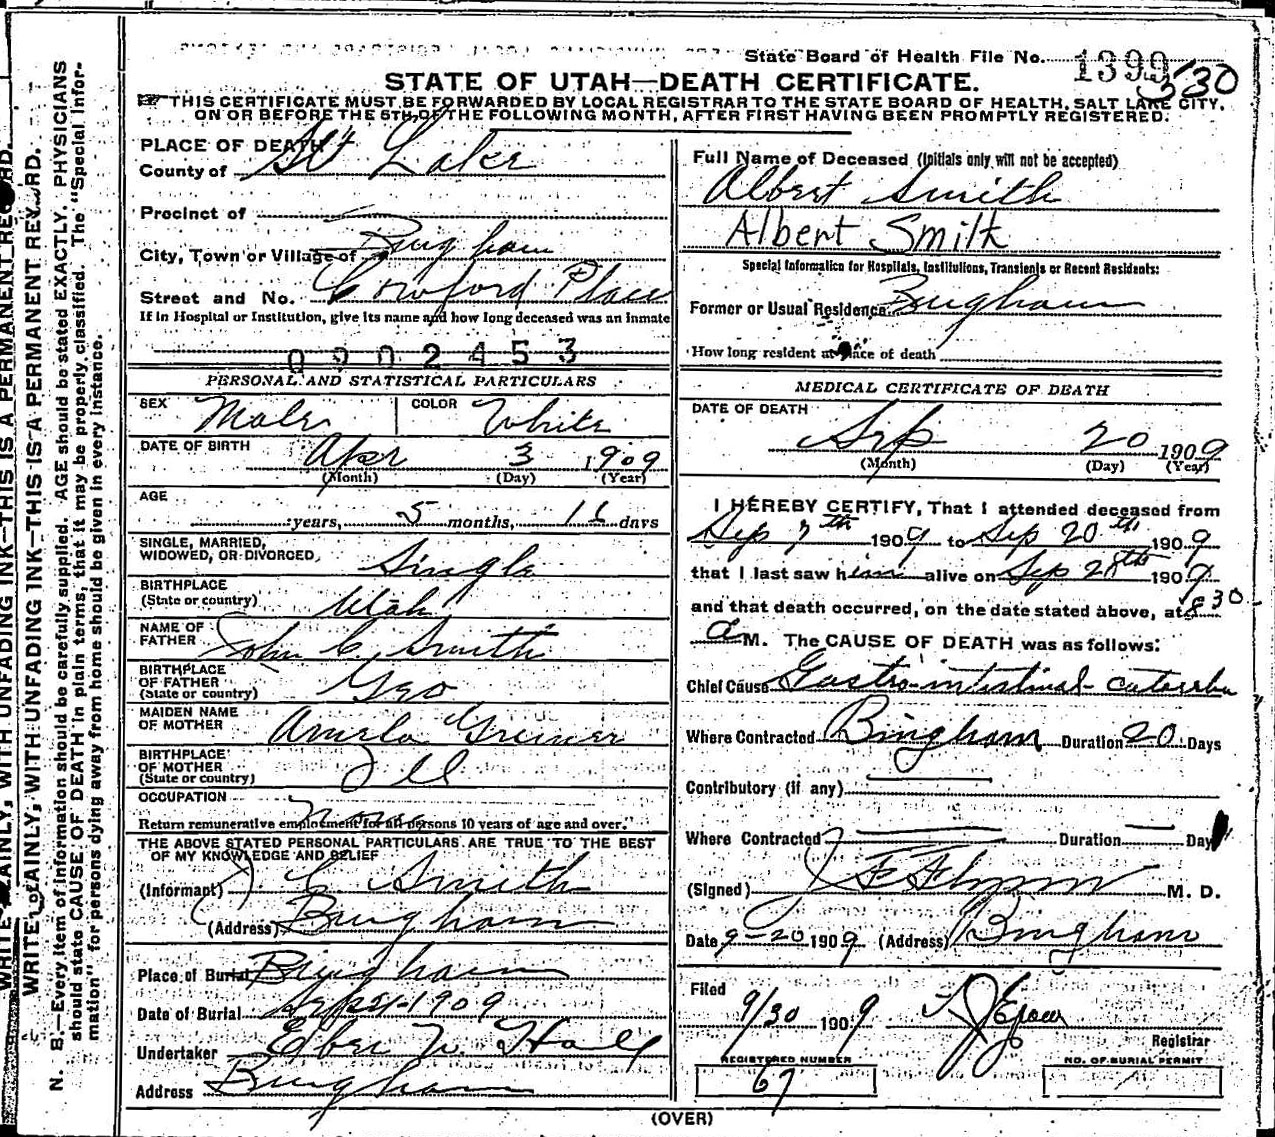 State Board of Health File No. 1399 330
STATE OF UTAH—DEATH CERTIFICATE.
THIS CERTIFICATE MUST BE FORWARDED BY LOCAL REGISTRAR TO THE STATE BOARD OF HEALTH, SALT LAKE CITY,
ON OR BEFORE THE 5TH OF THE FOLLOWING MONTH, AFTER FIRST HAVING BEEN PROMPTLY REGISTERED.
WRITE PLAINLY, WITH UNFADING INK—THIS IS A PERMANENT RECORD.
WRITE PLAINLY, WITH UNFADING INK—THIS IS A PERMANENT RECORD.
N. B.—Every item of information should be carefully supplied. AGE should be stated EXACTLY. PHYSICIANS
should state CAUSE OF DEATH in plain terms, that it may be properly classified. The "Special Infor-
mation" for persons dying away from home should be given in every instance.
PLACE OF DEATH
County of St Lake
Precinct of
City, Town or Village of Bingham
Street and No. Cowford Place
If in Hospital or Institution, give its name and how long deceased was an inmate
0902453
PERSONAL AND STATISTICAL PARTICULARS
SEX Male COLOR White
DATE OF BIRTH Apr 3 1909
(Month) (Day) (Year)
AGE
years, 5 months, 16 days
SINGLE, MARRIED,
WIDOWED, OR DIVORCED, Single
BIRTHPLACE
(State or country) Utah
NAME OF
FATHER John C. Smith
BIRTHPLACE
OF FATHER
(State or country) Geo
MAIDEN NAME
OF MOTHER Amela Greiner
BIRTHPLACE
OF MOTHER
(State or country) Ill
OCCUPATION None
Return remunerative employment for all persons 10 years of age and over.
THE ABOVE STATED PERSONAL PARTICULARS ARE TRUE TO THE BEST
OF MY KNOWLEDGE AND BELIEF
(Informant) J C Smith
(Address) Bingham
Place of Burial Bingham
Date of Burial Sep 21-1909
Undertaker Eber W Hall
Address Bingham
Full Name of Deceased (Initials only will not be accepted)
Albert Smith
Albert Smith
Special Information for Hospitals, Institutions, Transients or Recent Residents:
Former or Usual Residence Bingham
How long resident at place of death
MEDICAL CERTIFICATE OF DEATH
DATE OF DEATH
Sep 20 1909
(Month) (Day) (Year)
I HEREBY CERTIFY, That I attended deceased from
Sep 7th 1909 to Sep 20th 1909
that I last saw him alive on Sep 20th 1909
and that death occurred, on the date stated above, at 8 30
a M. The CAUSE OF DEATH was as follows:
Chief Cause Gastro-intestinal catarrh
Where Contracted Bingham Duration 20 Days
Contributory (if any)
Where Contracted Duration Days
(Signed) F Flynn M. D.
Date 9-20 1909 (Address) Bingham
Filed
9/30 1909
Registrar
REGISTERED NUMBER
67
NO. OF BURIAL PERMIT
(OVER)